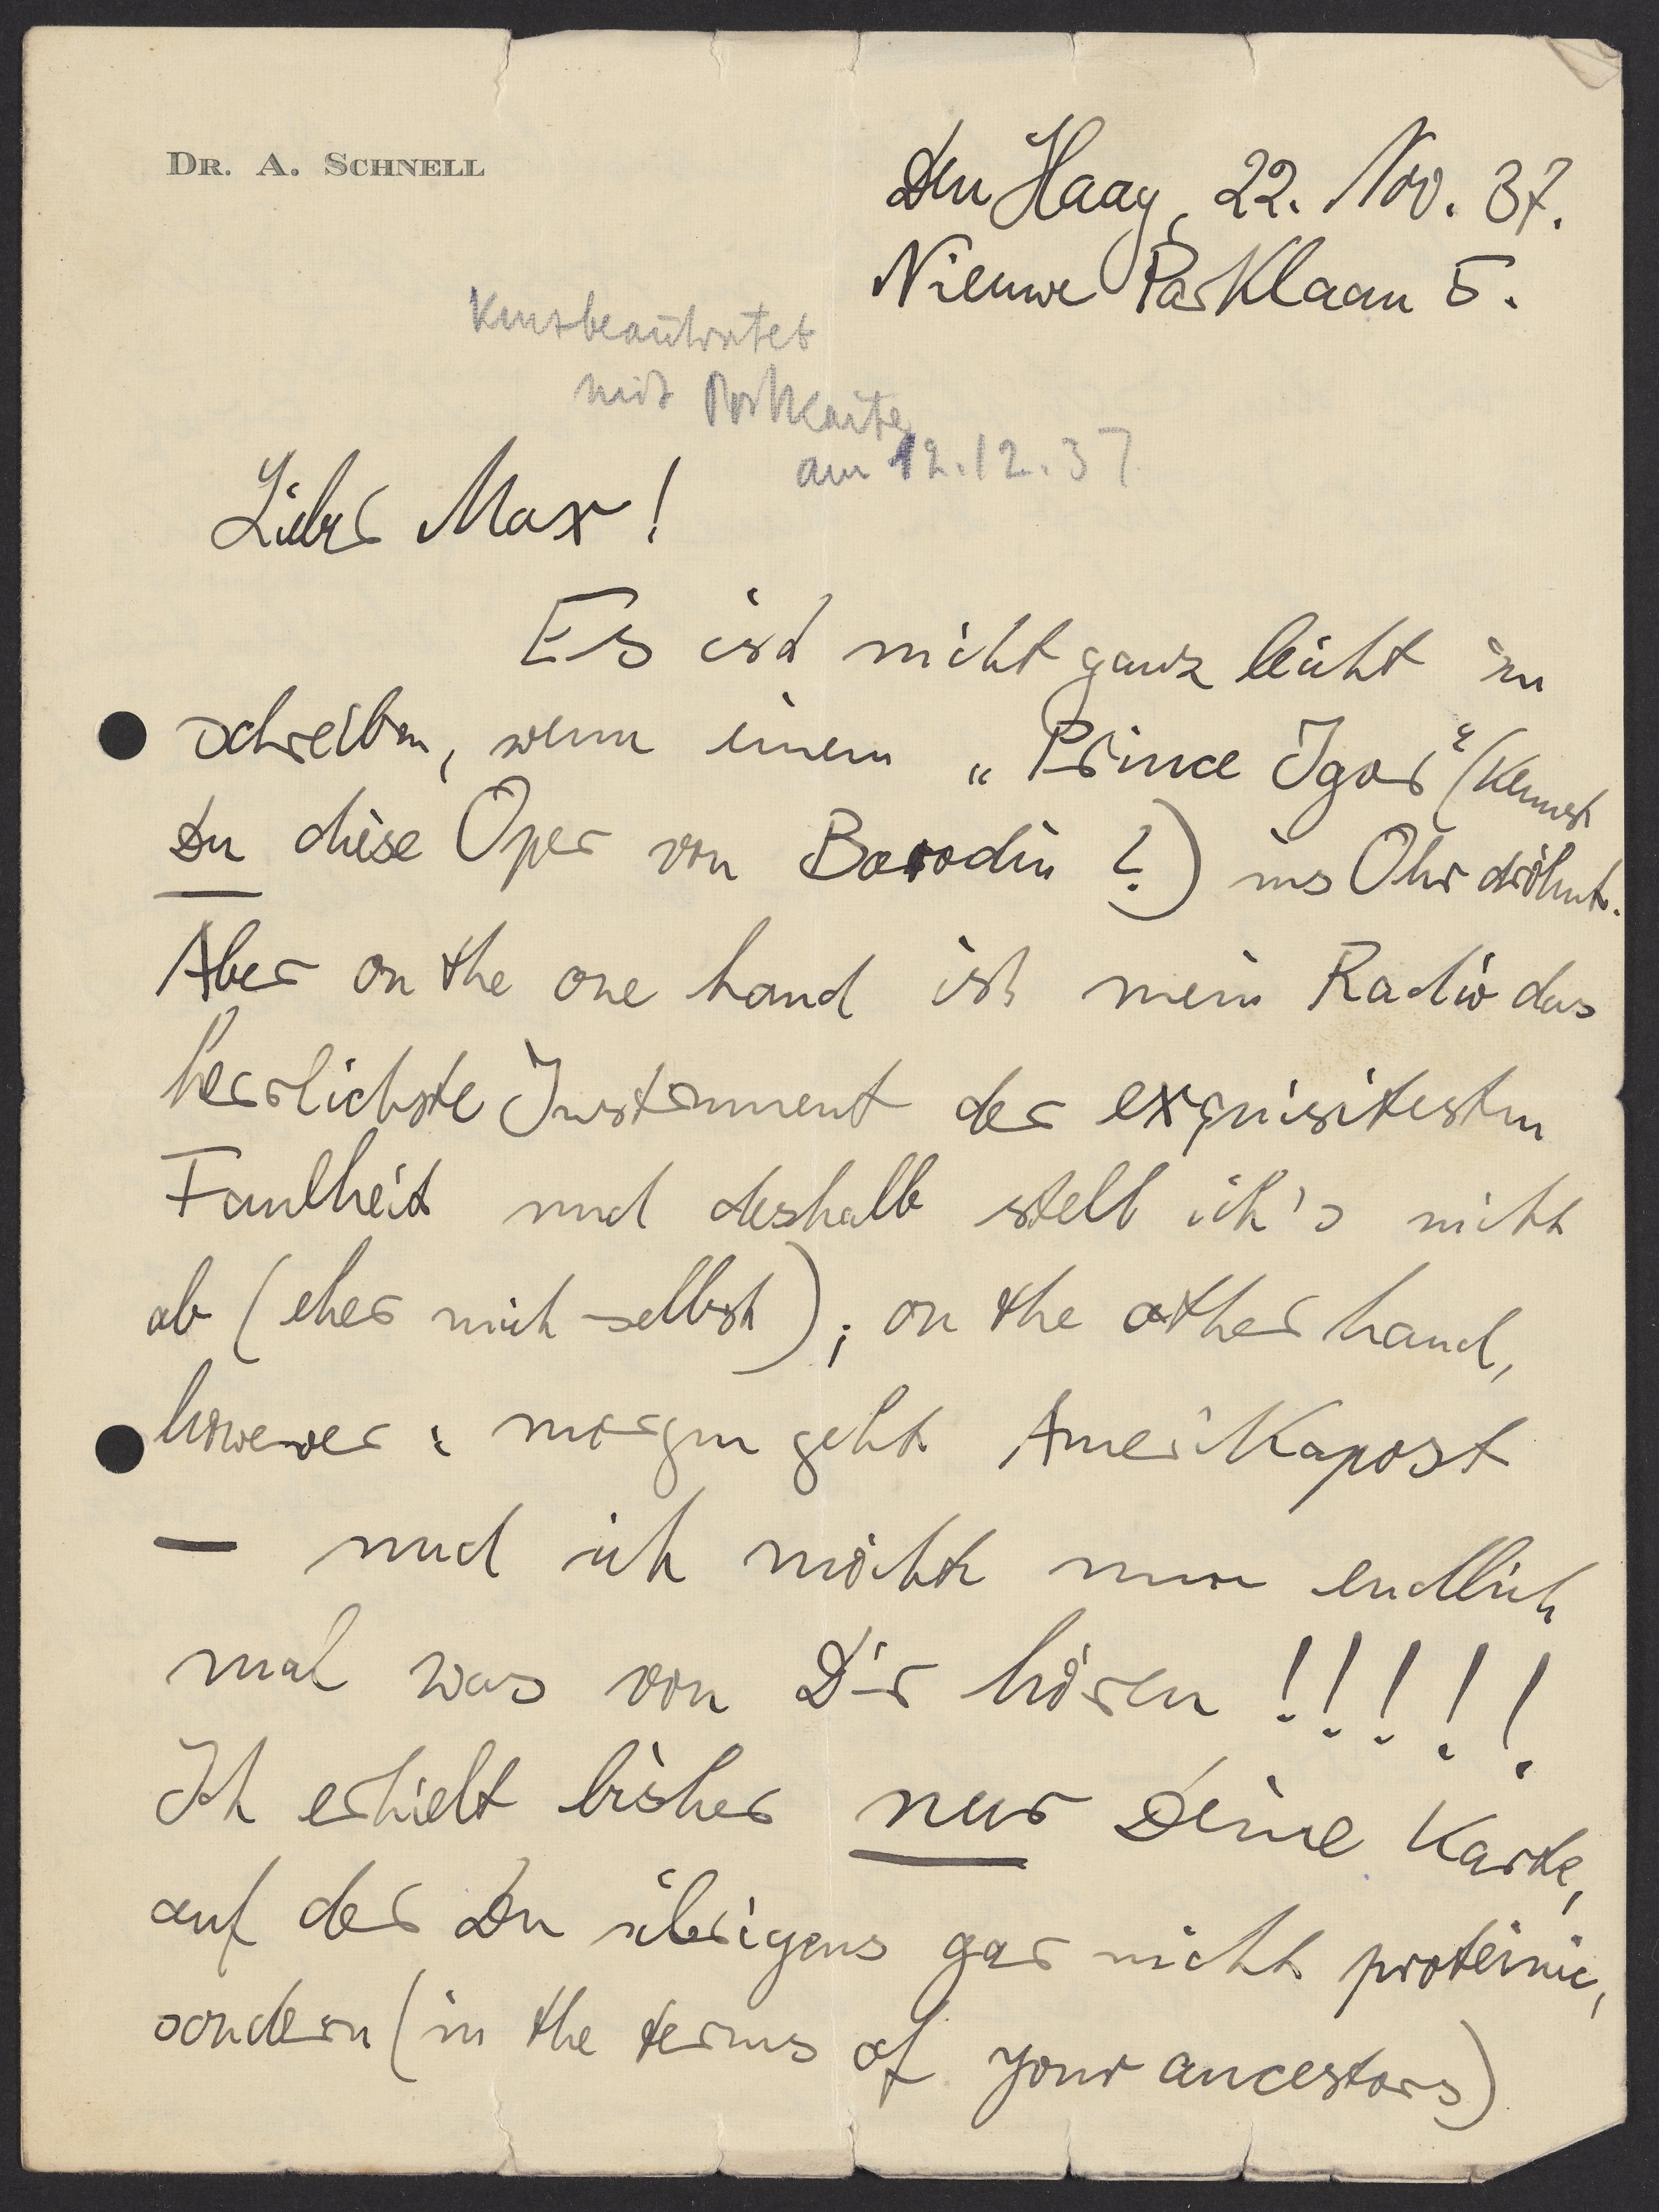 DR. A. SCHNELL
Den Haag, 22. Nov. 37.
Nieuwe Parklaan 5.
Kurz beantwortet
mit Postkarte
am 12.12.37
Lieber Max!
Es ist nicht ganz leicht zu
schreiben, wenn einem „Prince Igor“ (Kennst
Du diese Oper von Borodin?) ins Ohr dröhnt.
Aber on the one hand ist mein Radio das
herrlichste Instrument der exquisitesten
Faulheit und deshalb stell ich's nicht
ab (eher mich selbst); on the other hand,
however: morgen geht Amerikapost
— und ich möchte nun endlich
mal was von Dir hören !!!!!
Ich erhielt bisher nur Deine Karte,
auf der Du übrigens gar nicht proteinic,
sondern (in the terms of your ancestors)